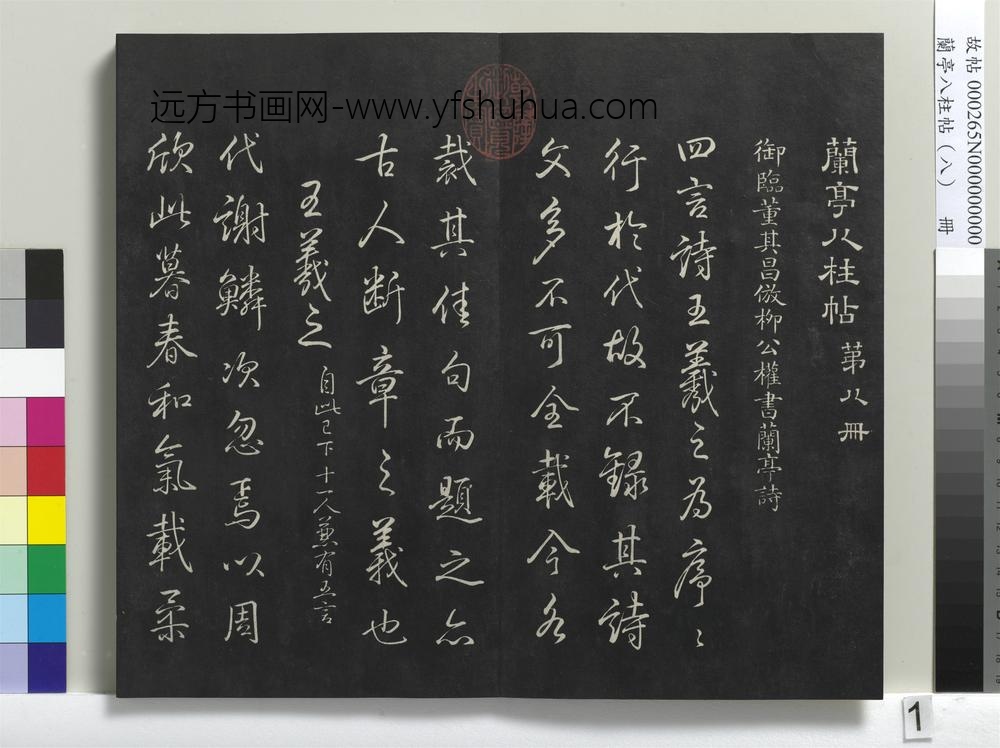 蘭亭八柱帖 第八冊
御臨董其昌倣柳公權書蘭亭詩
四言詩王羲之為序序
行於代故不錄其詩
文多不可全載今各
裁其佳句而題之亦
古人断章之義也
王羲之 自此已下十一人兼有五言
代謝鱗次忽焉以周
欣此暮春和氣載柔
远方书画网-www.yfshuhua.com
故帖 000265N000000000
蘭亭八柱帖(八) 冊
1